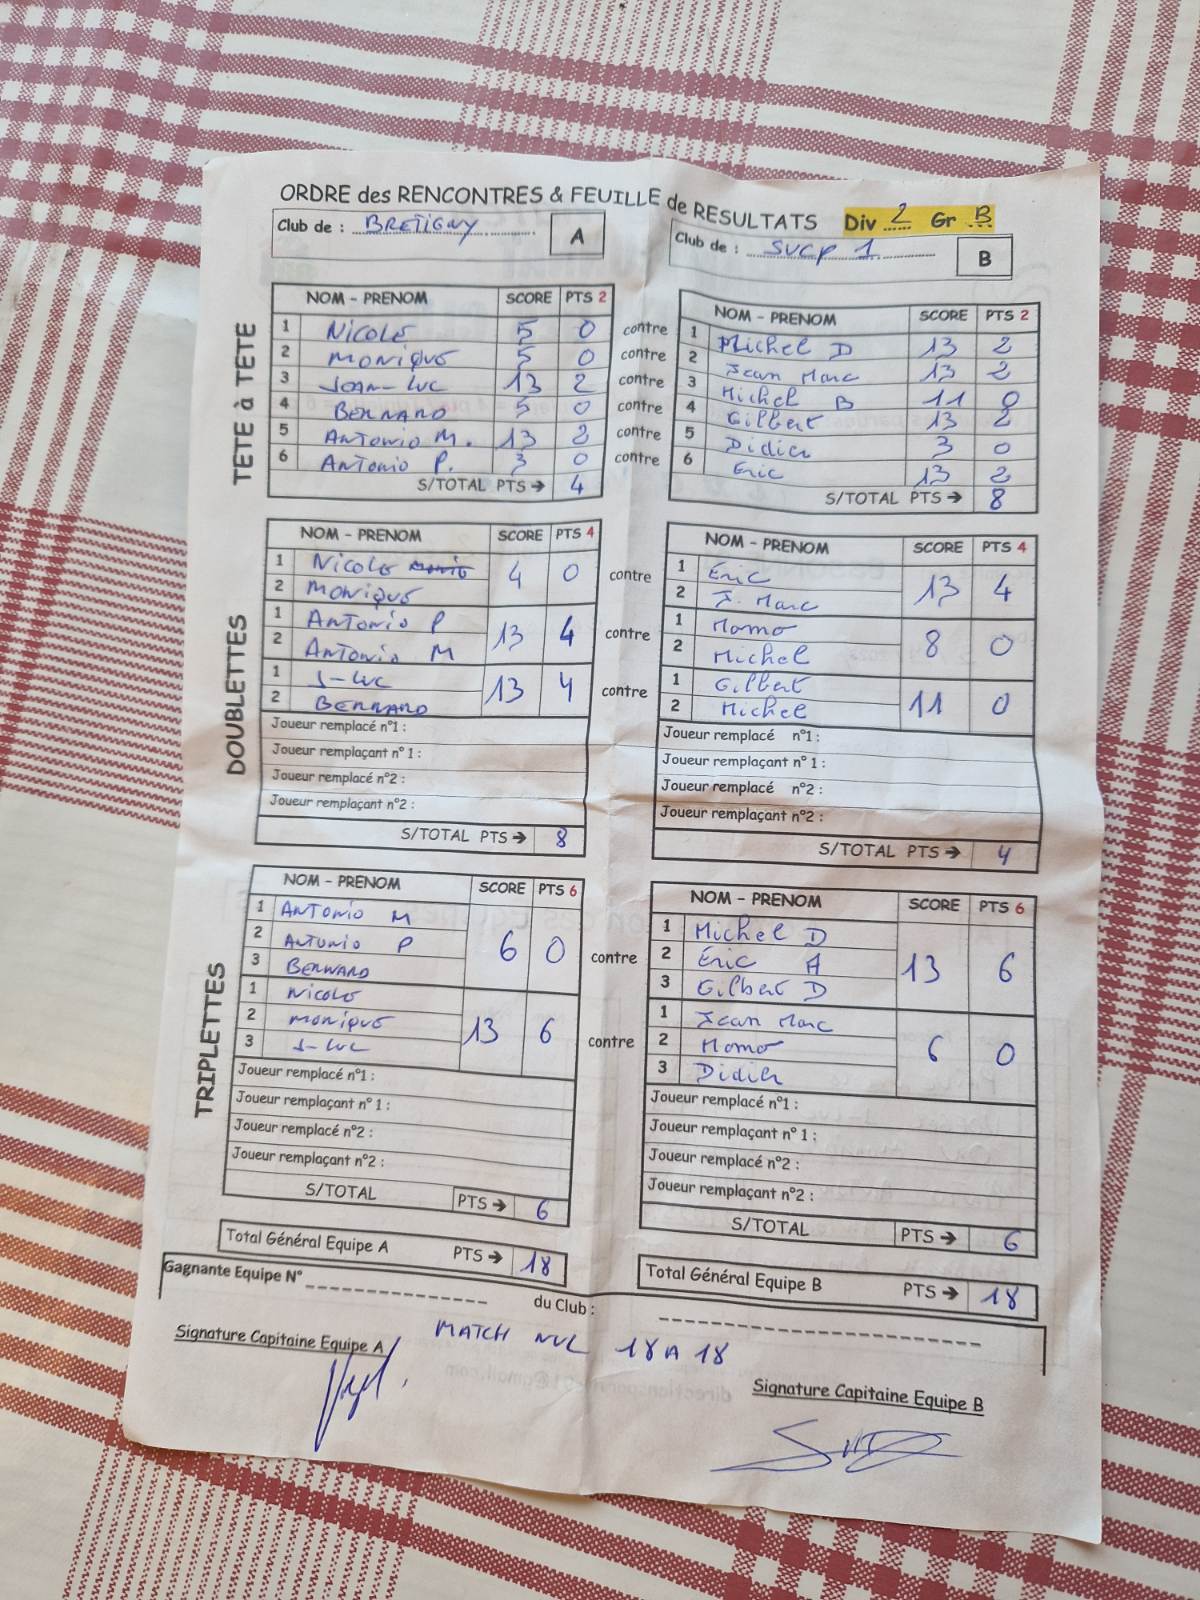 ORDRE des RENCONTRES & FEUILLE de RESULTATS Div 2 Gr B
Club de : BRETIGNY A
Club de : SUCP 1 B
TETE à TETE
NOM - PRENOM SCORE PTS 2
1 Nicole 5 0 contre
2 Monique 5 0 contre
3 Jean-Luc 13 2 contre
4 BERNARD 5 0 contre
5 Antonio M. 13 2 contre
6 Antonio P. 3 0 contre
S/TOTAL PTS → 4
NOM - PRENOM SCORE PTS 2
1 Michel D 13 2
2 Jean Marc 13 2
3 Michel B 11 0
4 Gilbert 13 2
5 Didier 3 0
6 Eric 13 2
S/TOTAL PTS → 8
DOUBLETTES
NOM - PRENOM SCORE PTS 4
1 Nicole 4 0 contre
2 Monique
1 Antonio P 13 4 contre
2 Antonio M
1 J-Luc 13 4 contre
2 BERNARD
Joueur remplacé n°1 :
Joueur remplaçant n° 1 :
Joueur remplacé n°2 :
Joueur remplaçant n°2 :
S/TOTAL PTS → 8
NOM - PRENOM SCORE PTS 4
1 Eric 13 4
2 J. Marc
1 Momo 8 0
2 Michel
1 Gilbert 11 0
2 Michel
Joueur remplacé n°1 :
Joueur remplaçant n° 1 :
Joueur remplacé n°2 :
Joueur remplaçant n°2 :
S/TOTAL PTS → 4
TRIPLETTES
NOM - PRENOM SCORE PTS 6
1 Antonio M 6 0 contre
2 Antonio P
3 BERNARD
1 Nicole 13 6 contre
2 Monique
3 J-Luc
Joueur remplacé n°1 :
Joueur remplaçant n° 1 :
Joueur remplacé n°2 :
Joueur remplaçant n°2 :
S/TOTAL PTS → 6
NOM - PRENOM SCORE PTS 6
1 Michel D 13 6
2 Eric A
3 Gilbert D
1 Jean Marc 6 0
2 Momo
3 Didier
Joueur remplacé n°1 :
Joueur remplaçant n° 1 :
Joueur remplacé n°2 :
Joueur remplaçant n°2 :
S/TOTAL PTS → 6
Total Général Equipe A PTS → 18
Total Général Equipe B PTS → 18
Gagnante Equipe N° du Club :
MATCH NUL 18 A 18
Signature Capitaine Equipe A
Signature Capitaine Equipe B